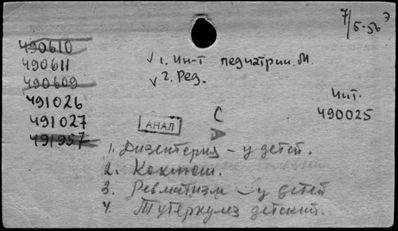 7/5-56 э
490610
490611
490609
491026
491027
491957
√ 1. Ин-т педиатрии. М.
√ 2. Ред.
Инт.
490025
АНАЛ
С
1. Дизентерия – у детей.
2. Коклюш.
3. Ревматизм – у детей
4. Туберкулез детский.